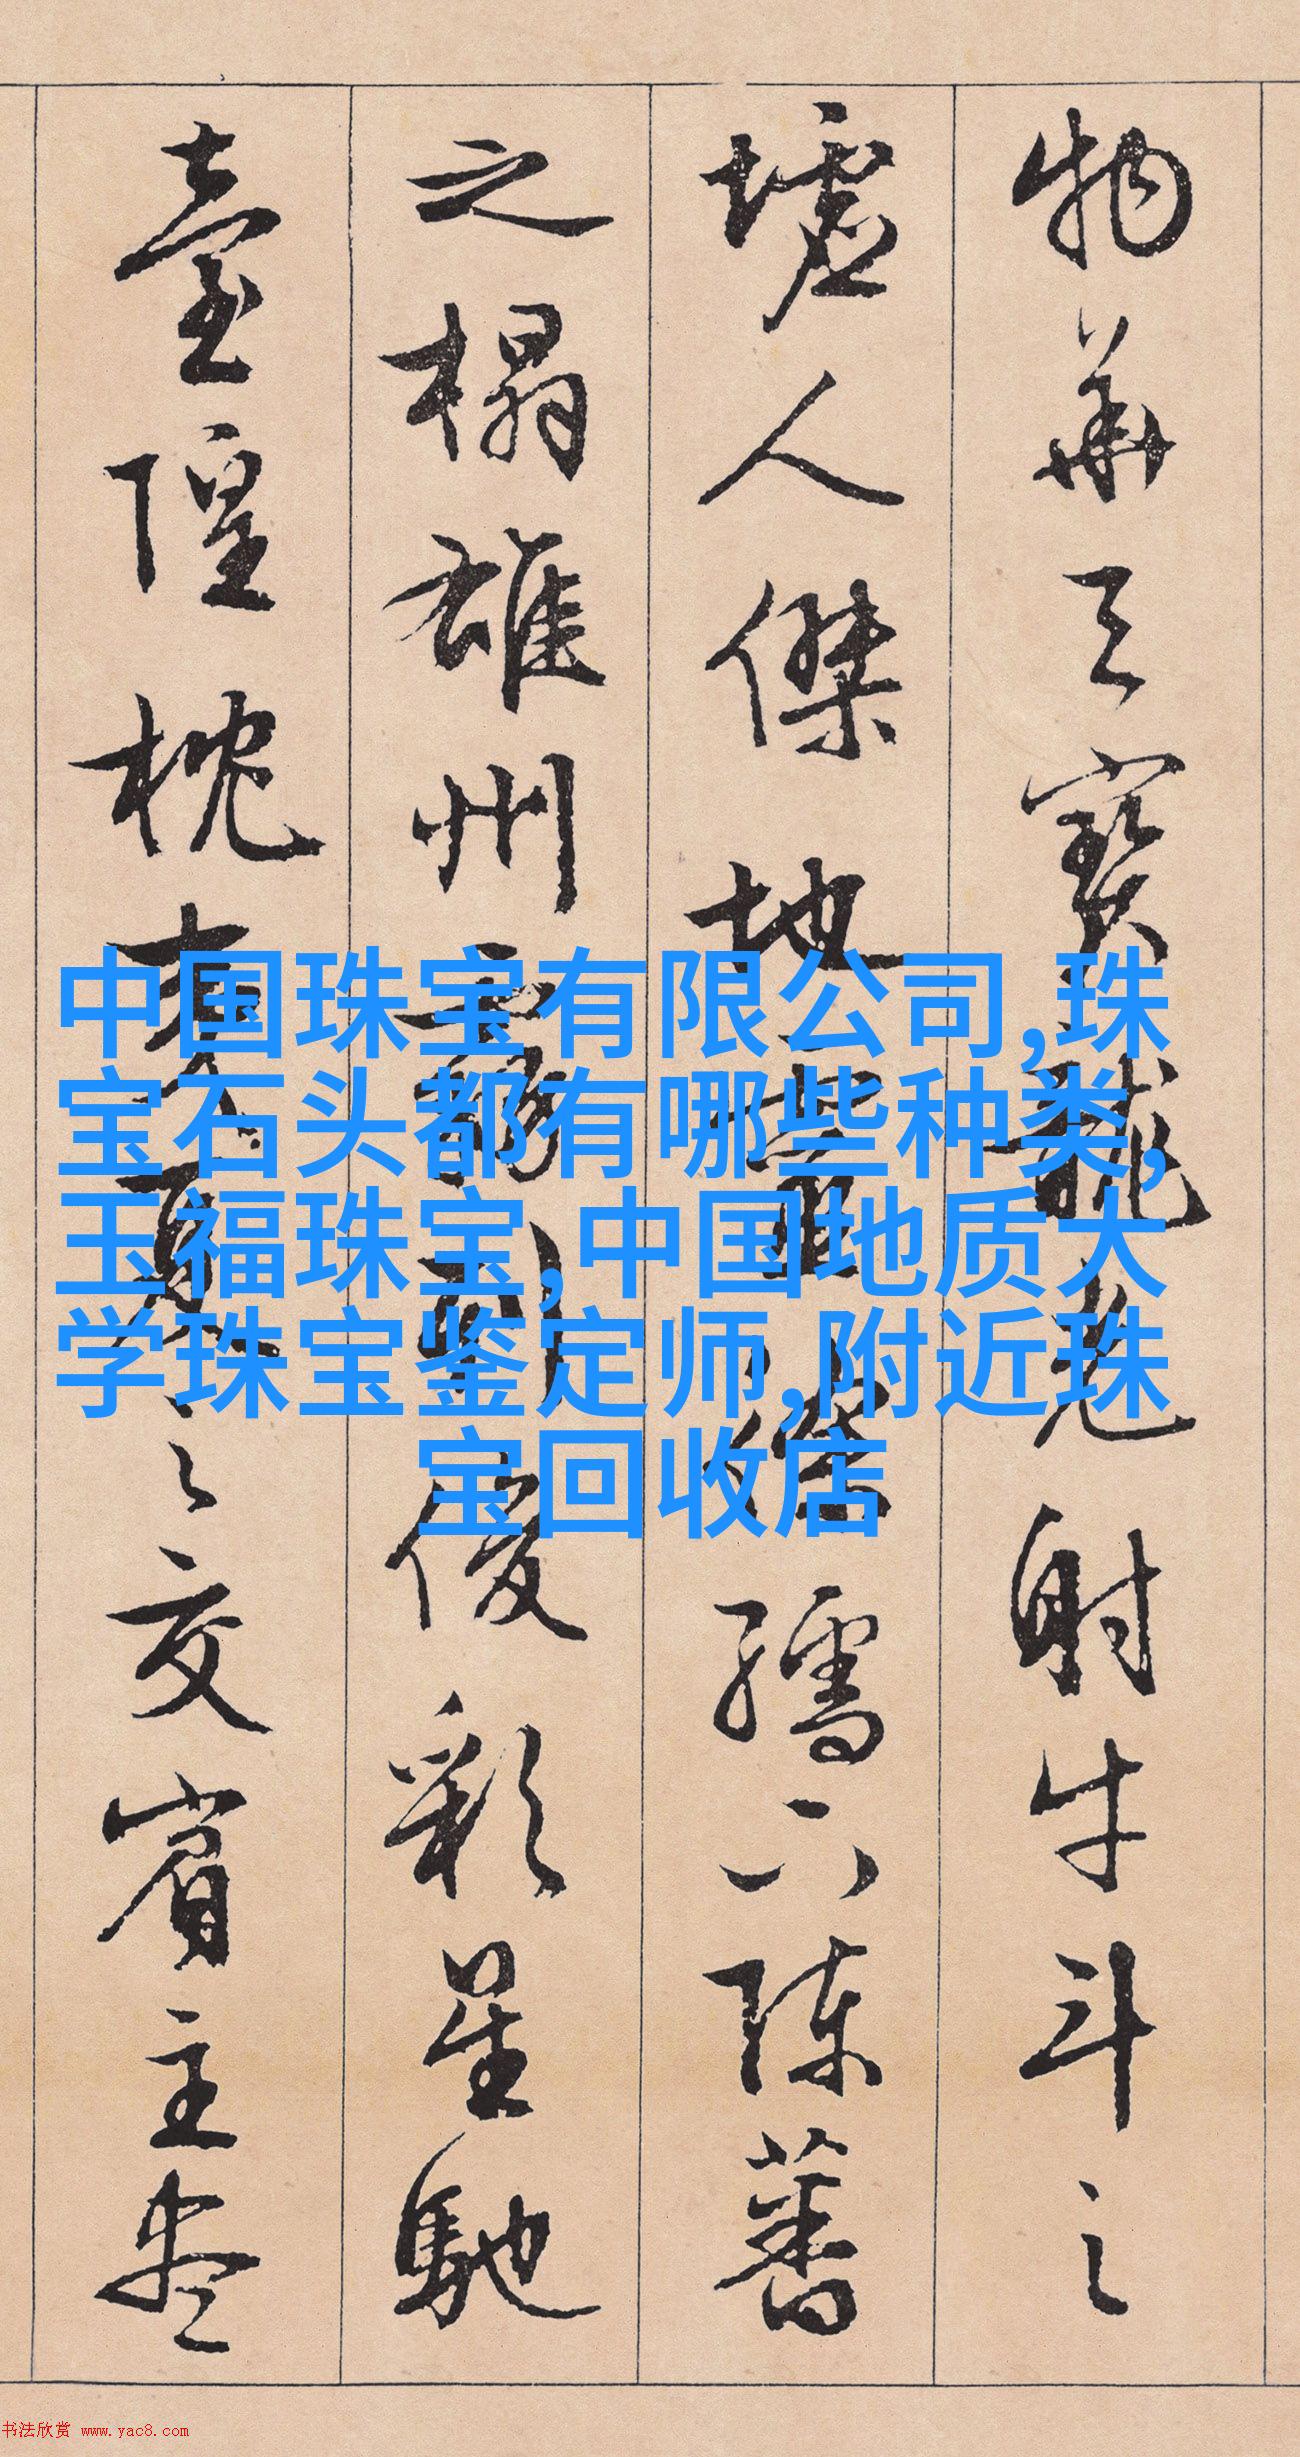 物華天寶龍光射牛斗之
墟人傑地靈徐孺下陳蕃
之榻雄州霧列俊彩星馳
臺隍枕夷夏之交賓主盡
中国珠宝有限公司,珠
宝石头都有哪些种类,
玉福珠宝,中国地质大
学珠宝鉴定师,附近珠
宝回收店
书法欣赏 www.yac8.com